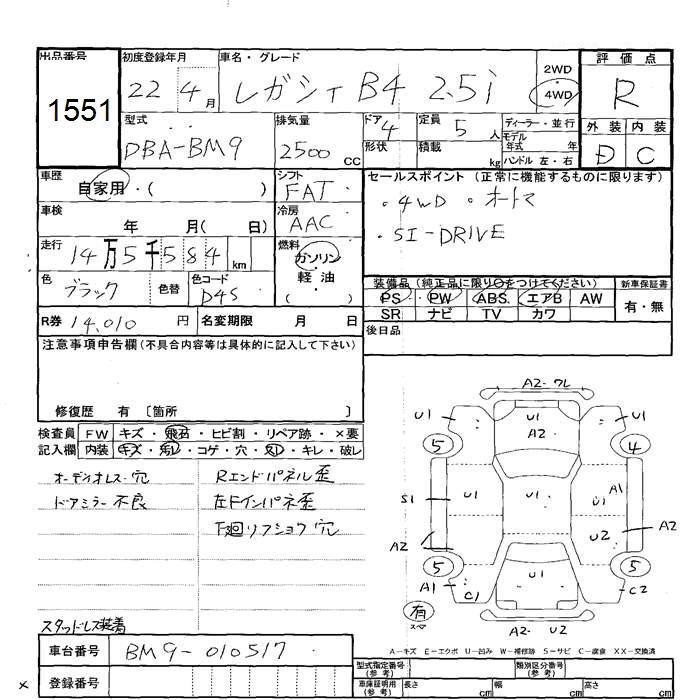 出品番号
1551
初度登録年月
22 4月
車名・グレード
レガシィ B4 2.5i
2WD
4WD
評価点
R
外装 内装
D C
型式
DBA-BM9
排気量
2500 CC
ドア 4
形状
定員 5 人
積載 kg
ディーラー・並行
モデル年式 年
ハンドル 左・右
車歴
自家用・( )
シフト
FAT
セールスポイント (正常に機能するものに限ります)
・4WD ・オートマ
・SI-DRIVE
車検
年 月( 日)
冷房
AAC
走行
14万5千584km
燃料
ガソリン
軽油
( )
色
ブラック
色替
色コード
D4S
装備品(純正品に限り○をつけてください)
PS PW ABS エアB AW
SR ナビ TV カワ
新車保証書
有・無
R券 14,010 円
名変期限 月 日
後日品
注意事項申告欄(不具合内容等は具体的に記入して下さい)
修復歴 有 〔箇所 〕
検査員記入欄
FW キズ・飛石・ヒビ割・リペア跡・×要
内装 キズ・汚レ・コゲ・穴・欠レ・キレ・破レ
オーディオレス・穴
ドアミラー不良
Rエンドパネル歪
左Fインパネ歪
下廻リフショク穴
スタッドレス装着
A2・ワレ
U1
U1
A2
U1
5
4
S1
U1
U1
A1
A2
U2
A2
5
5
A1
C1
U1
C2
有
スペア
A2・U2
A-キズ E-エクボ U-凹み W-補修跡 S-サビ C-腐食 XX-交換済
車台番号
BM9-010517
×
登録番号
型式指定番号(参考)
類別区分番号(参考)
車庫証明用(参考)
長さ cm
幅 cm
高さ cm